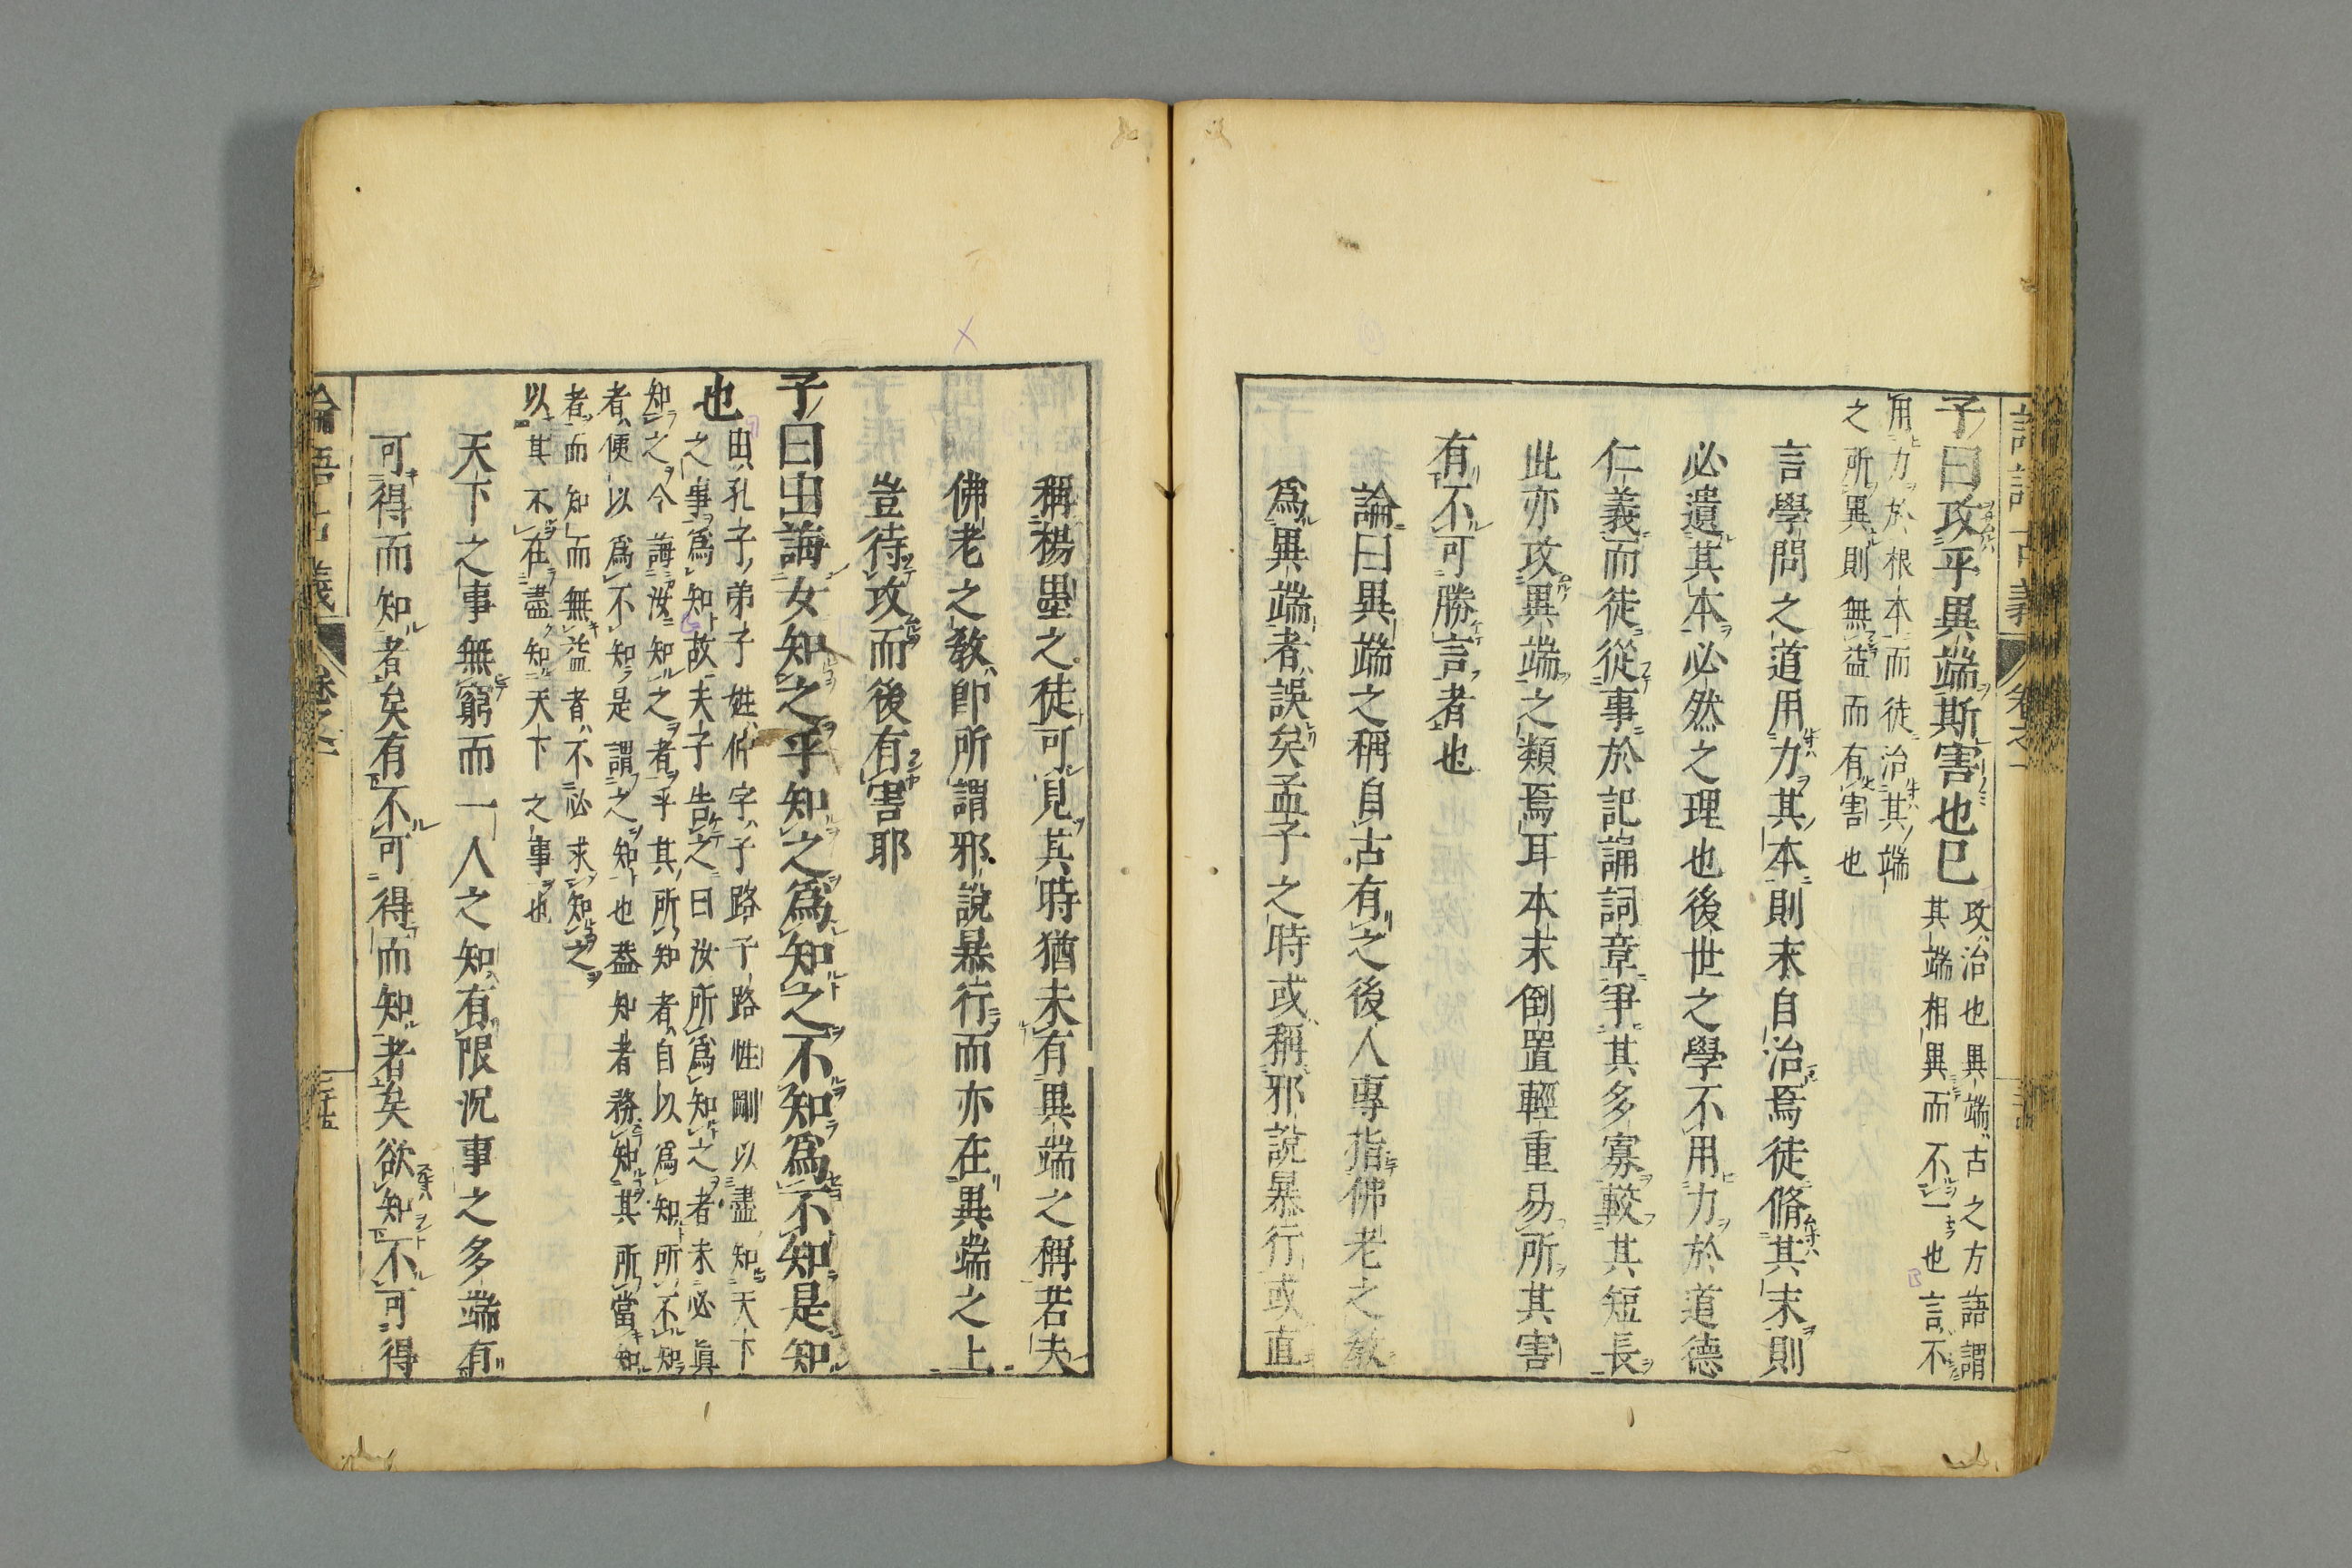 子曰攻乎異端斯害也已
攻治也異端古之方語謂
其端相異而不一也言不
用力於根本而徒治其端
之所異則無益而有害也
言學問之道用力其本則末自治焉徒脩其末則
必遺其本必然之理也後世之學不用力於道德
仁義而徒從事於記誦詞章爭其多寡較其短長
此亦攻異端之類焉耳本末倒置輕重易所其害
有不可勝言者也
論曰異端之稱自古有之後人專指佛老之教
爲異端者誤矣孟子之時或稱邪說暴行或直
稱楊墨之徒可見其時猶未有異端之稱若夫
佛老之教卽所謂邪說暴行而亦在異端之上
豈待攻而後有害耶
子曰由誨女知之乎知之爲知之不知爲不知是知
也
由孔子弟子姓仲字子路子路性剛以盡知天下
之事爲知故夫子告之曰汝所爲知之者未必眞
知之今誨汝知之者乎其所知者自以爲知所不知
者便以爲不知是謂之知也蓋知者務知其所當知
者而知而無益者不必求知之
以其不在盡知天下之事也
天下之事無窮而一人之知有限況事之多端有
可得而知者矣有不可得而知者矣欲知不可得
論語古義
卷之一